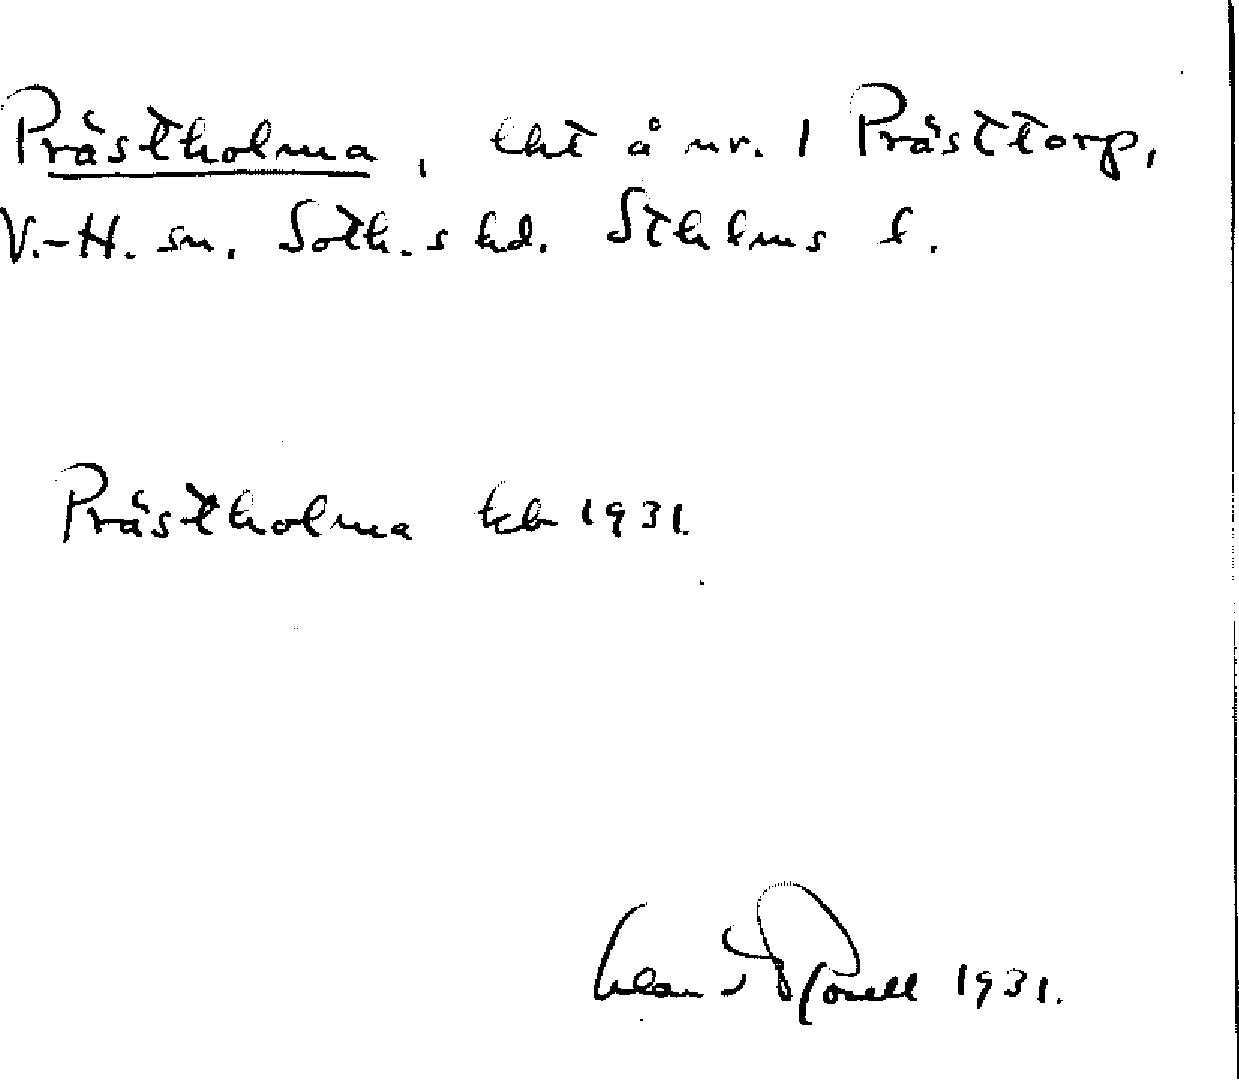 Prästholma, lht å nr. 1 Prästtorp,
V.-H. sn. Soth.s hd. Sthlms l.
Prästholma Ekb 1931.
1931.